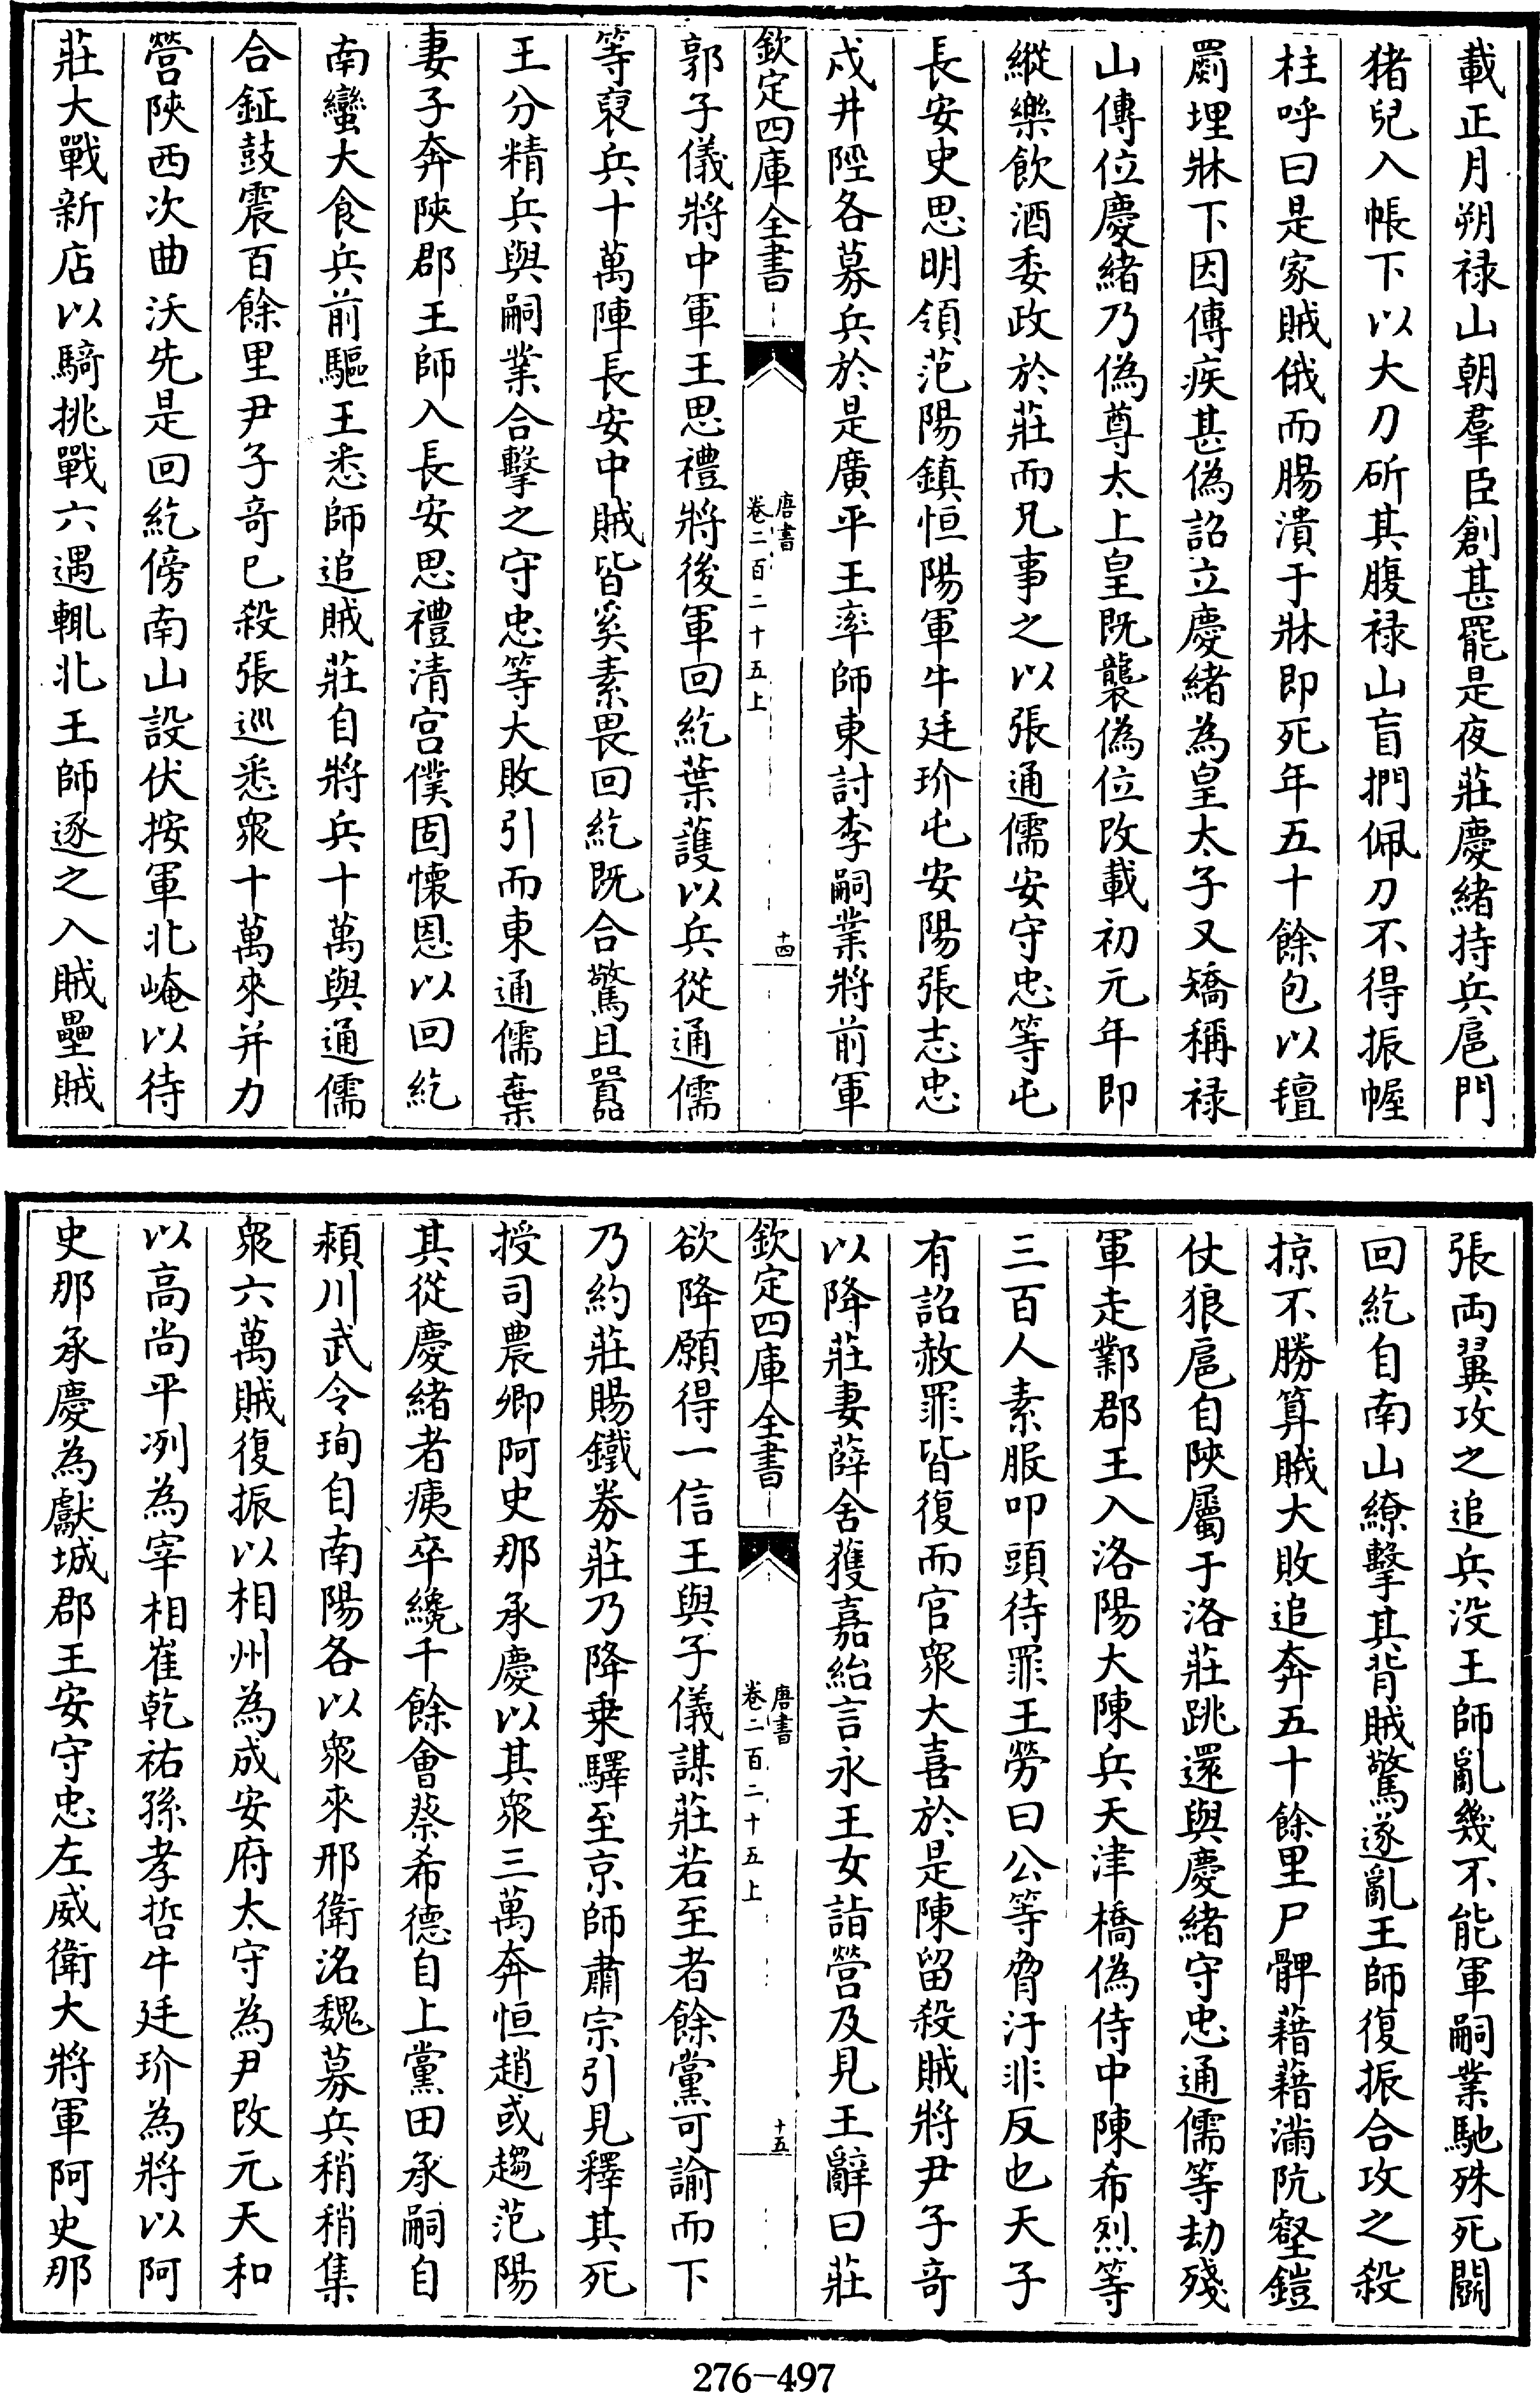 載正月朔禄山朝羣臣創甚罷是夜莊慶緒持兵扈門
猪兒入帳下以大刀斫其腹禄山盲捫佩刀不得振幄
柱呼曰是家賊俄而腸潰于牀即死年五十餘包以氊
罽埋牀下因傳疾甚偽詔立慶緒為皇太子又矯稱禄
山傳位慶緒乃偽尊太上皇既襲偽位改載初元年即
縱樂飲酒委政於莊而兄事之以張通儒安守忠等屯
長安史思明領范陽鎮恒陽軍牛廷玠屯安陽張志忠
戍井陘各募兵於是廣平王率師東討李嗣業將前軍
欽定四庫全書
唐書
卷二百二十五上
十四
郭子儀將中軍王思禮將後軍回紇葉護以兵從通儒
等裒兵十萬陣長安中賊皆奚素畏回紇既合驚且囂
王分精兵與嗣業合擊之守忠等大敗引而東通儒棄
妻子奔陝郡王師入長安思禮清宮僕固懷恩以回紇
南蠻大食兵前驅王悉師追賊莊自將兵十萬與通儒
合鉦鼓震百餘里尹子竒已殺張巡悉衆十萬來并力
營陝西次曲沃先是回紇傍南山設伏按軍北崦以待
莊大戰新店以騎挑戰六遇輒北王師逐之入賊壘賊
張両翼攻之追兵没王師亂幾不能軍嗣業馳殊死鬭
回紇自南山繚擊其背賊驚遂亂王師復振合攻之殺
掠不勝算賊大敗追奔五十餘里尸髀藉藉滿阬壑鎧
仗狼扈自陝屬于洛莊跳還與慶緒守忠通儒等劫殘
軍走鄴郡王入洛陽大陳兵天津橋偽侍中陳希烈等
三百人素服叩頭待罪王勞曰公等脅汙非反也天子
有詔赦罪皆復而官衆大喜於是陳留殺賊將尹子竒
以降莊妻薛舍獲嘉紿言永王女詣營及見王辭曰莊
欽定四庫全書
唐書
卷二百二十五上
十五
欲降願得一信王與子儀謀莊若至者餘黨可諭而下
乃約莊賜鐵券莊乃降乗驛至京師肅宗引見釋其死
授司農卿阿史那承慶以其衆三萬奔恒趙或趨范陽
其從慶緒者痍卒纔千餘會蔡希德自上黨田承嗣自
潁川武令珣自南陽各以衆來邢衛洺魏募兵稍稍集
衆六萬賊復振以相州為成安府太守為尹改元天和
以高尚平洌為宰相崔乾祐孫孝哲牛廷玠為將以阿
史那承慶為獻城郡王安守忠左威衛大將軍阿史那
276-497